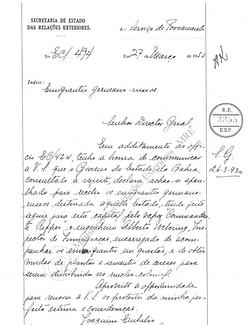 SECRETARIA DE ESTADO
DAS
RELAÇÕES EXTERIORES.
Ao Serviço de Povoamento
EC/494
Em 27 Março de 1930
Indice:
Emigrantes germano-russos.
Senhor Director Geral,
Em additamento ao offi-
cio EC/424, tenho a honra de communicar
a V.S. que o Governo do Estado da Bahia,
consultado a respeito, declara achar-se apa-
relhado para receber os emigrantes germano-
russos destinados aquelle Estado, tendo feito
seguir para esta capital pelo vapor Commandante
Ripper o engenheiro Alberto
pector de encarregado de acom-
panhar os emigrantes em questão, e de obter
mudas de plantas e sementes de cereaes para
serem distribuidos no nucleo colonial.
Aproveito a opportunidade
para renovar a V.S. os protestos da minha
perfeita estima e consideração.
Joaquim Eulalio
R.E.
EXP.
S.G.